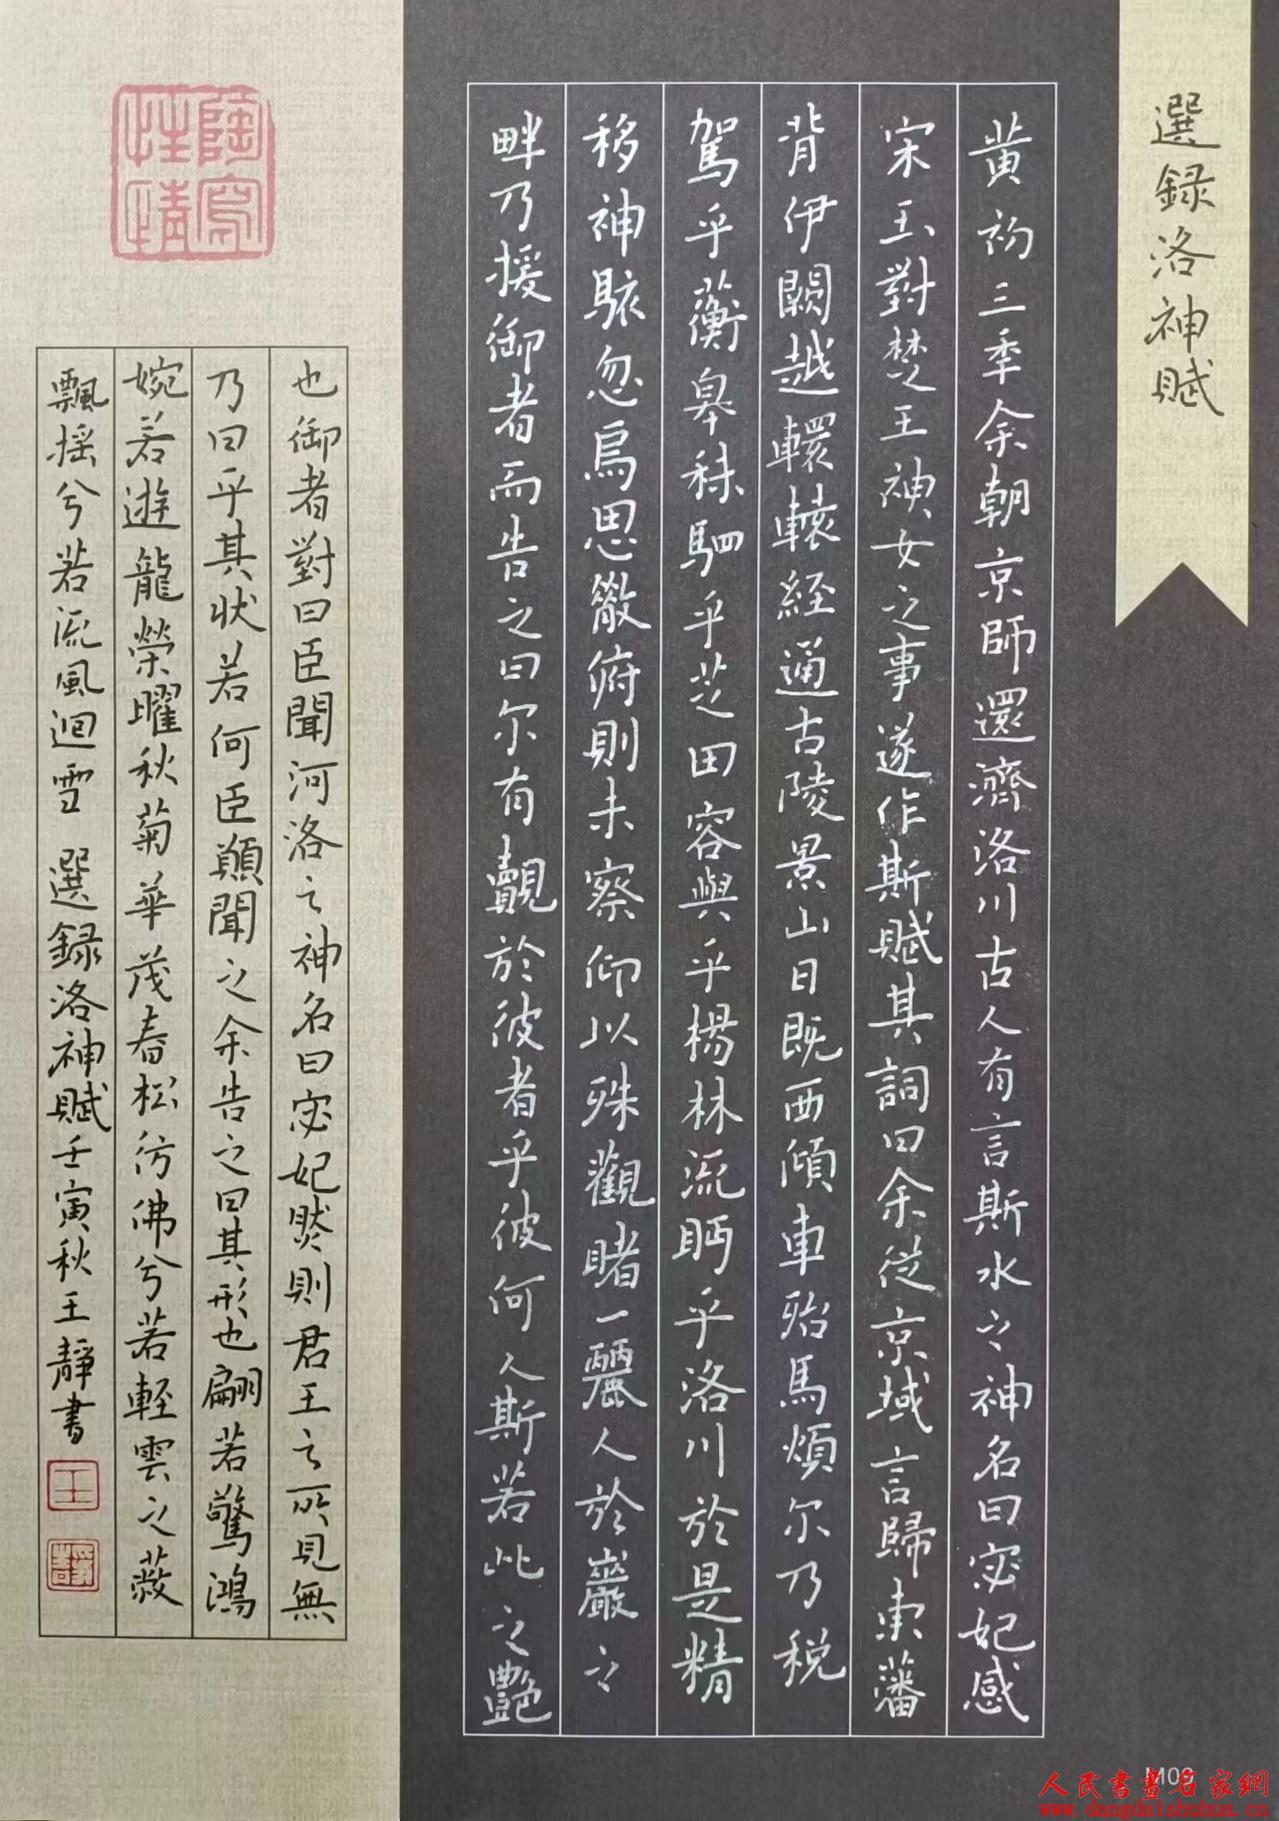 選録洛神賦
黄初三年余朝京師還濟洛川古人有言斯水之神名曰宓妃感
宋玉對楚王神女之事遂作斯賦其詞曰余從京域言歸東藩
背伊闕越轘轅經通谷陵景山日既西傾車殆馬煩尔乃税
駕乎蘅皋秣駟乎芝田容與乎楊林流眄乎洛川於是精
移神駭忽焉思散俯則未察仰以殊觀睹一麗人於巖之
畔乃援御者而告之曰尔有覿於彼者乎彼何人斯若此之艷
也御者對曰臣聞河洛之神名曰宓妃然則君王之所見無
乃曰乎其状若何臣願聞之余告之曰其形也翩若驚鴻
婉若遊龍榮曜秋菊華茂春松彷彿兮若輕雲之蔽
飄摇兮若流風迴雪 選録洛神賦壬寅秋王靜書
陶寫性情
王
靜書
M09
人民書畫名家網
www.dangdaishuhua.cn